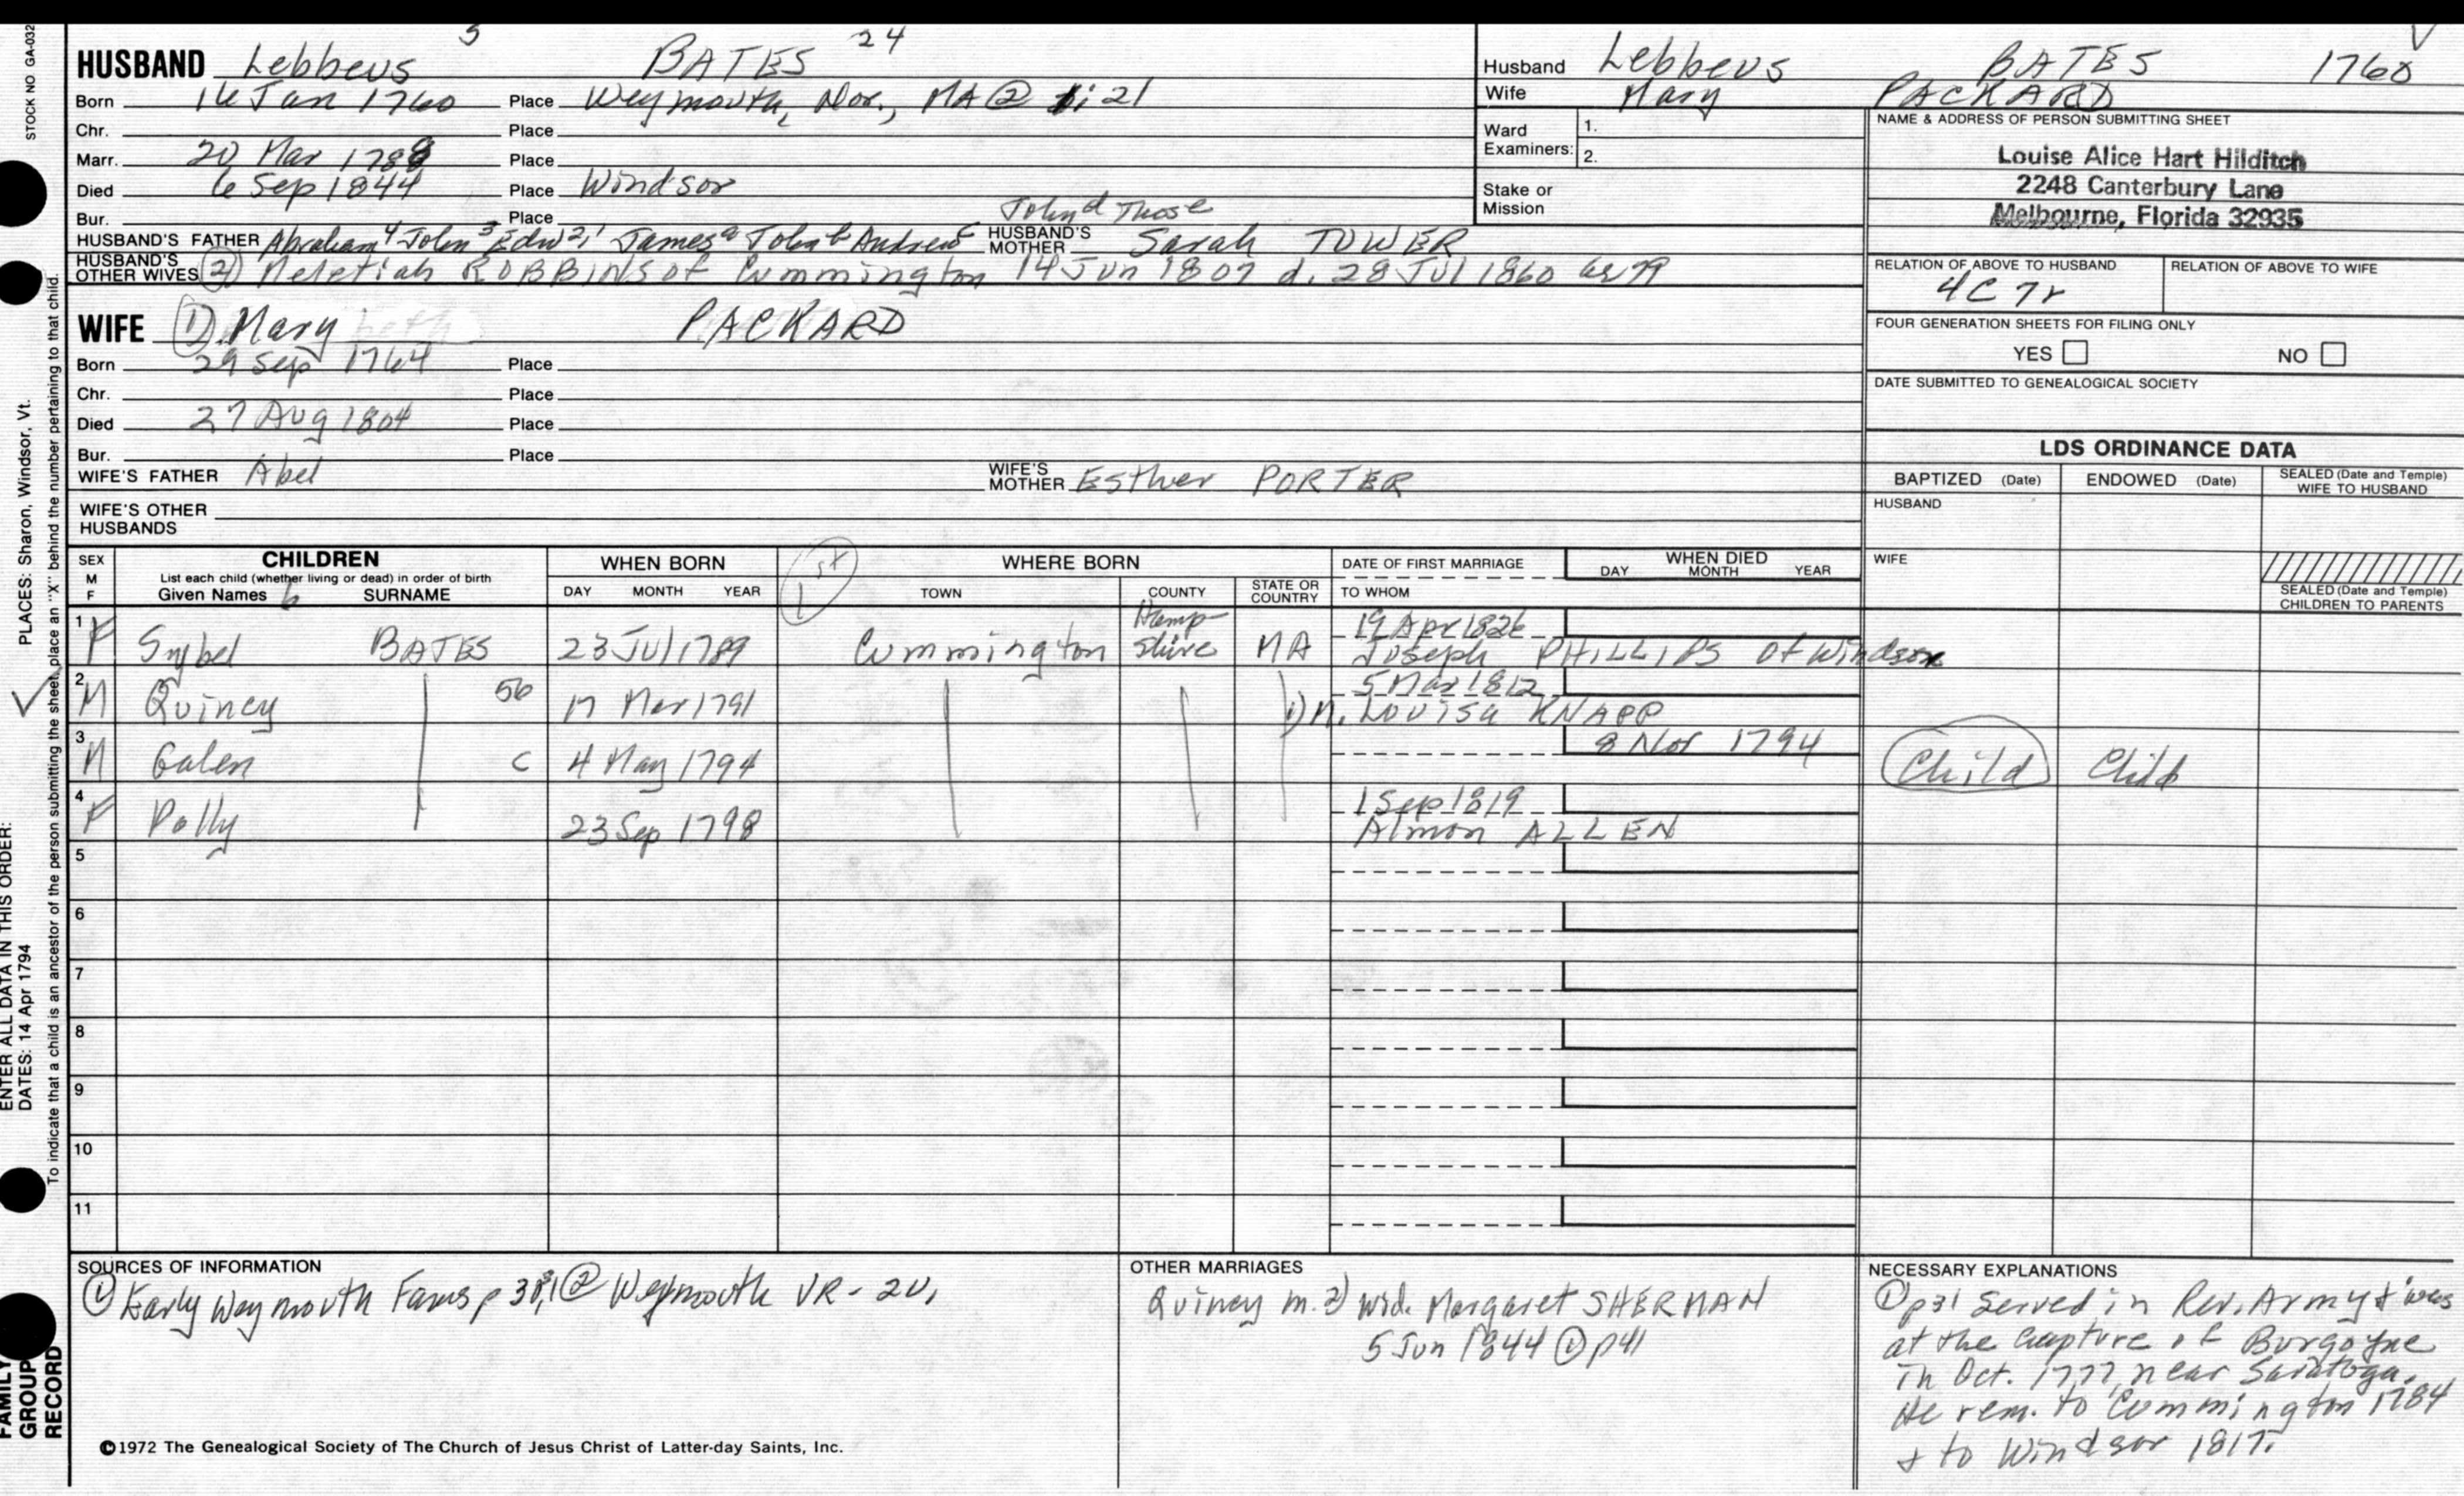 STOCK NO GA-032
HUSBAND Lebbeus 5 BATES 24
Born 16 Jan 1760 Place Weymouth, Nor., MA @ 1:21
Chr. Place
Marr. 20 Mar 1788 Place
Died 6 Sep 1844 Place Windsor
Bur. Place
HUSBAND'S FATHER Abraham 4 John 3 Edw 2,1 James a John b Andrew c John d Those HUSBAND'S MOTHER Sarah TOWER
HUSBAND'S OTHER WIVES (2) Meletiah ROBBINS of Cummington 14 Jun 1807 d. 28 Jul 1860 ae 79
WIFE (1) Mary PACKARD
Born 29 Sep 1764 Place
Chr. Place
Died 27 Aug 1804 Place
Bur. Place
WIFE'S FATHER Abel WIFE'S MOTHER Esther PORTER
WIFE'S OTHER HUSBANDS
Husband Lebbeus BATES 1760
Wife Mary PACKARD
Ward Examiners: 1.
2.
Stake or Mission
NAME & ADDRESS OF PERSON SUBMITTING SHEET
Louise Alice Hart Hilditch
2248 Canterbury Lane
Melbourne, Florida 32935
RELATION OF ABOVE TO HUSBAND RELATION OF ABOVE TO WIFE
4C 7r
FOUR GENERATION SHEETS FOR FILING ONLY
YES NO
DATE SUBMITTED TO GENEALOGICAL SOCIETY
LDS ORDINANCE DATA
BAPTIZED (Date) ENDOWED (Date) SEALED (Date and Temple) WIFE TO HUSBAND
HUSBAND
WIFE
SEALED (Date and Temple) CHILDREN TO PARENTS
SEX M F CHILDREN WHEN BORN 1st WHERE BORN DATE OF FIRST MARRIAGE WHEN DIED
List each child (whether living or dead) in order of birth
Given Names 6 SURNAME DAY MONTH YEAR TOWN COUNTY STATE OR COUNTRY TO WHOM DAY MONTH YEAR
1 F Sybel BATES 23 Jul 1789 Cummington Hampshire MA 19 Apr 1826
Joseph PHILLIPS of Windsor
2 M Quincy 56 17 Mar 1791 5 Mar 1812
1) N. Louisa KNAPP
3 M Galen C 4 May 1794 8 Nov 1794 Child Child
4 F Polly 23 Sep 1798 1 Sep 1819
Almon ALLEN
5
6
7
8
9
10
11
SOURCES OF INFORMATION
(1) Early Weymouth Fams p 38, (2) Weymouth VR - 2V,
OTHER MARRIAGES
Quincy m. 2) wid. Margaret SHERMAN
5 Jun 1844 (1) p41
NECESSARY EXPLANATIONS
(1) p31 Served in Rev. Army & was
at the Capture of Burgoyne
in Oct. 1777, near Saratoga.
He rem. to Cummington 1784
& to Windsor 1817.
©1972 The Genealogical Society of The Church of Jesus Christ of Latter-day Saints, Inc.
PLACES: Sharon, Windsor, Vt.
To indicate that a child is an ancestor of the person submitting the sheet, place an "X" behind the number pertaining to that child.
ENTER ALL DATA IN THIS ORDER:
DATES: 14 Apr 1794
FAMILY GROUP RECORD